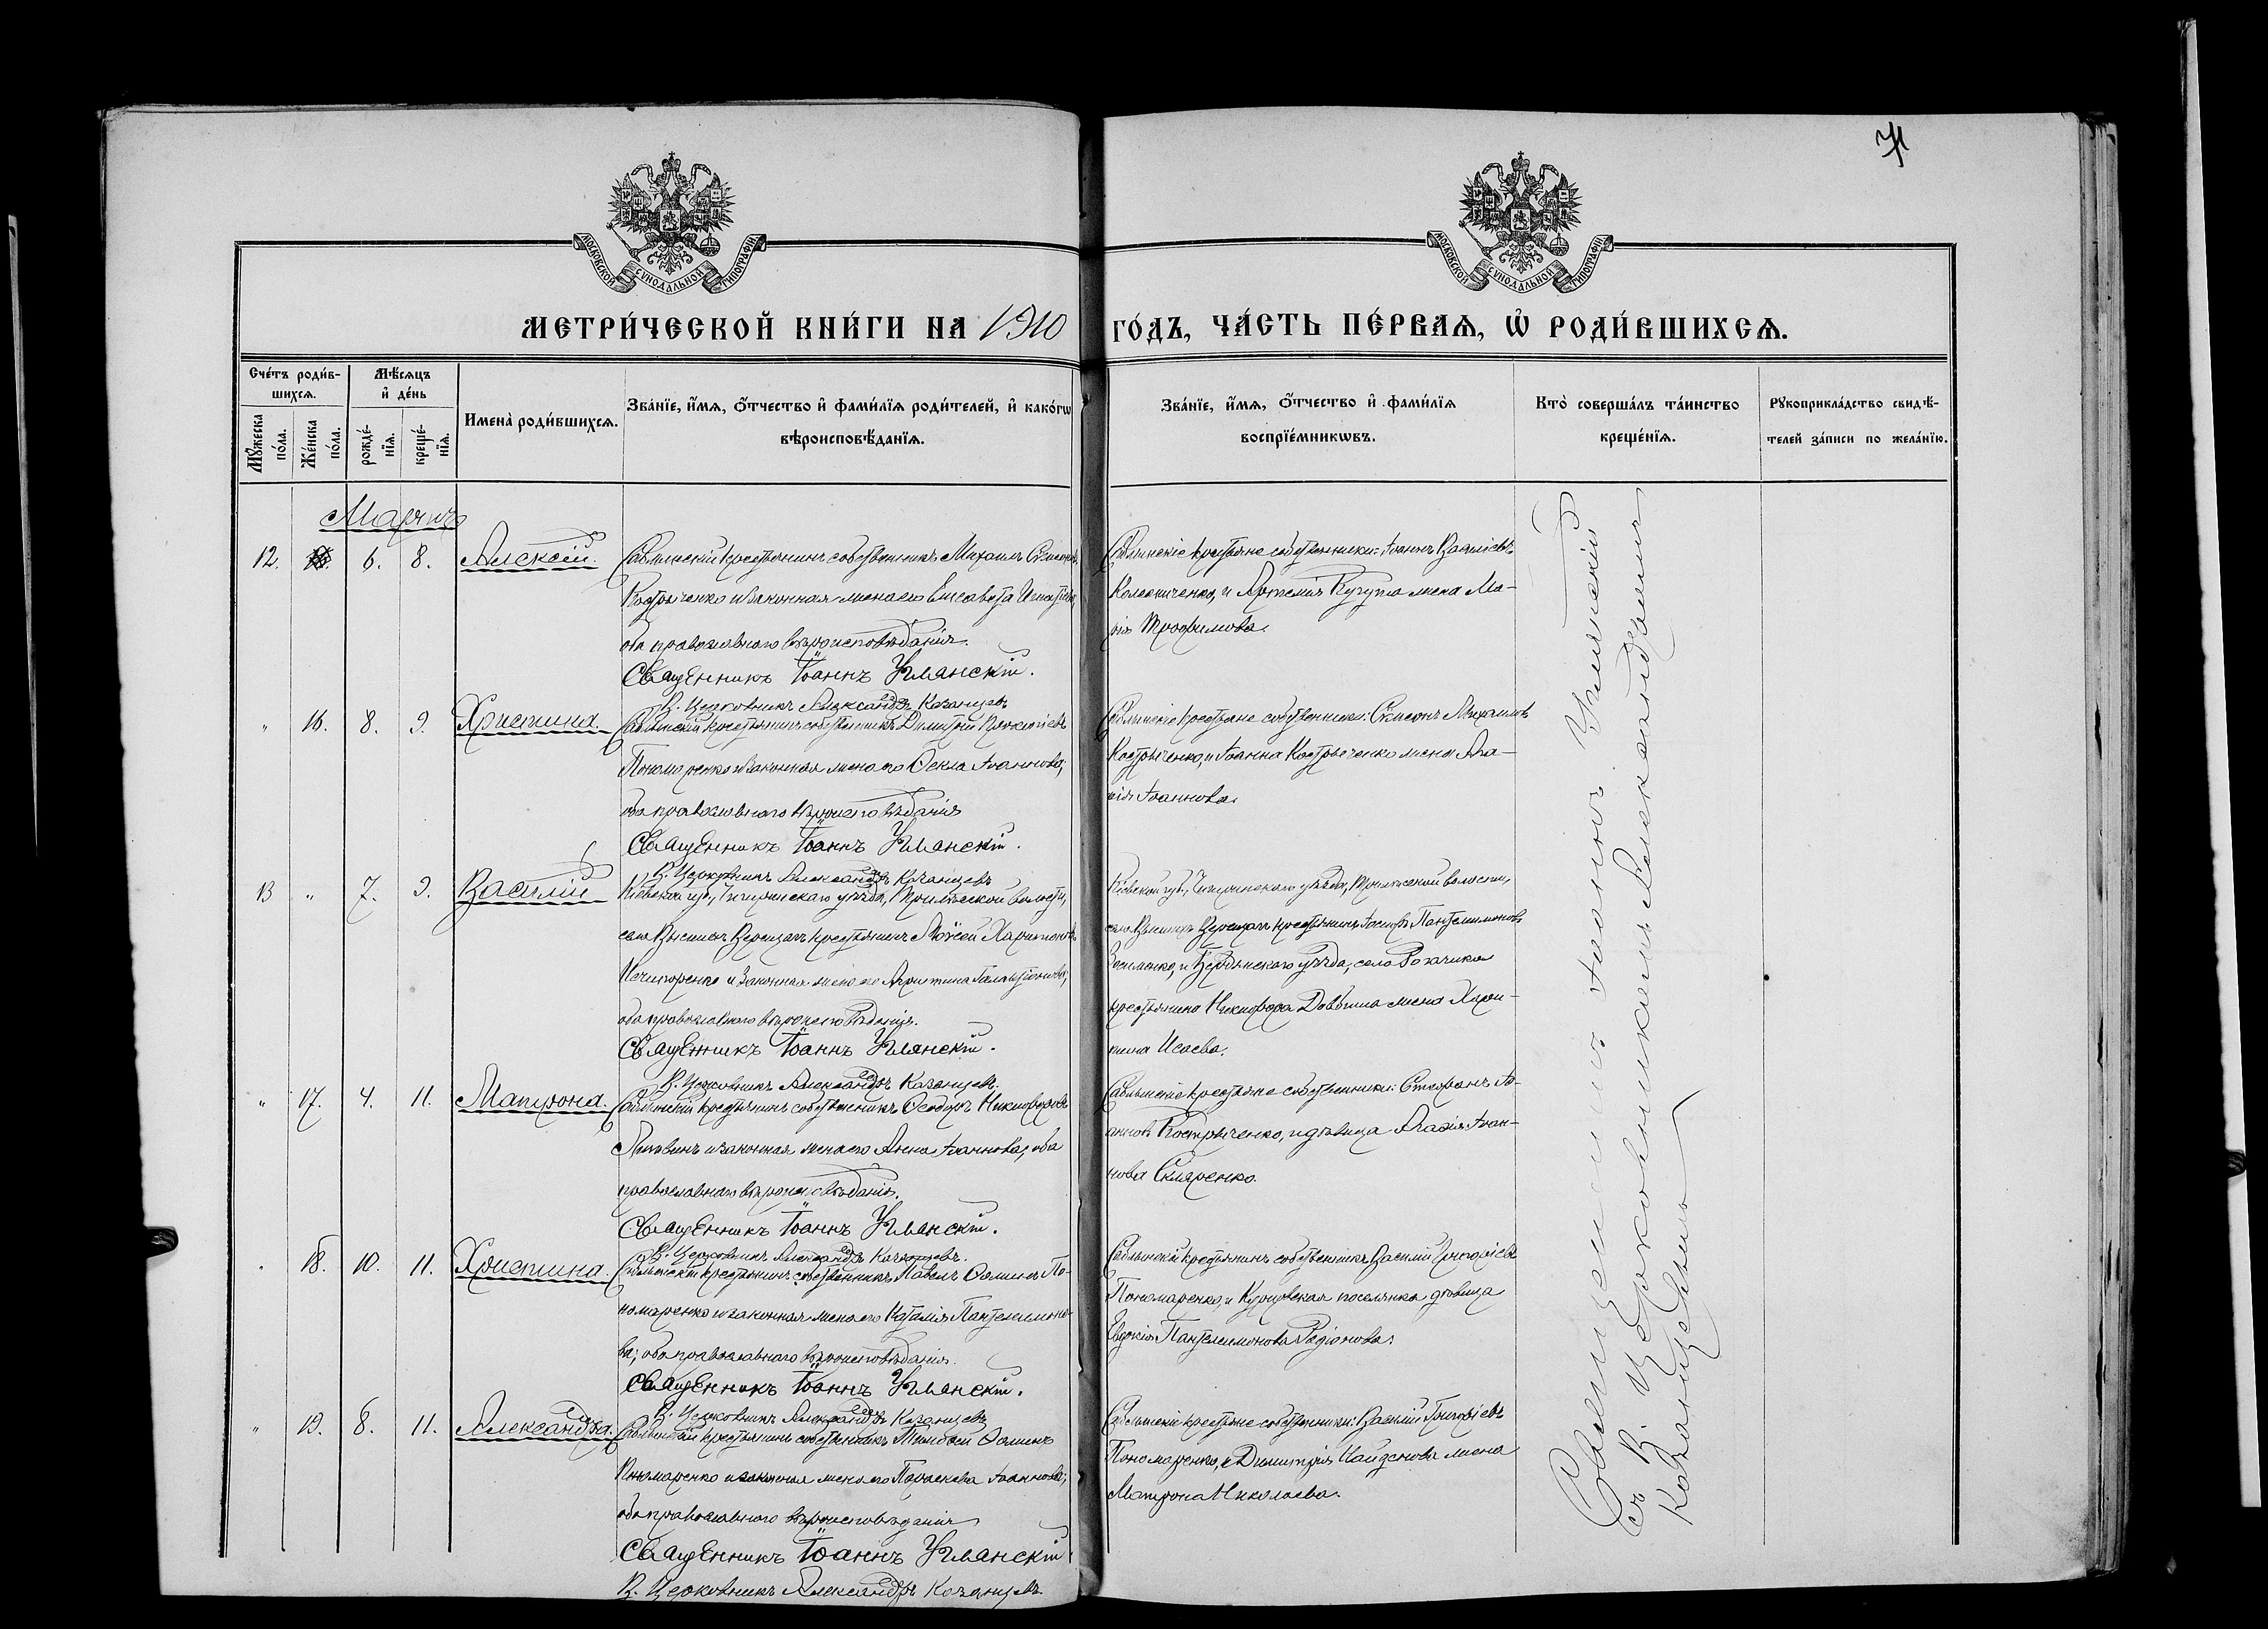 71
МОСКОВСКОЙ СѴНОДАЛЬНОЙ ТИПОГРАФІИ
МОСКОВСКОЙ СѴНОДАЛЬНОЙ ТИПОГРАФІИ
МЕТРИ́ЧЕСКОЙ КНИ́ГИ НА 1910 ГО́ДЪ, ЧА́СТЬ ПЕ́РВАѦ, Ѡ҆ РОДИ́ВШИХСѦ.
Сче́тъ роди́в-
шихсѧ.
Мꙋ́жеска по́ла.
Же́нска по́ла.
Мѣ́сѧцъ
и҆ де́нь
рожде́-
нїѧ.
креще́-
нїѧ.
Имена̀ роди́вшихсѧ.
Зва́нїе, и҆́мѧ, ѻ҆́тчество и҆ фами́лїѧ роди́телей, и҆ како́гѡ
вѣроисповѣ́данїѧ.
Зва́нїе, и҆́мѧ, ѻ҆́тчество и҆ фами́лїѧ
воспрїе́мникѡвъ.
Кто̀ соверша́лъ та́инство
креще́нїѧ.
Рꙋкоприкла́дство свидѣ́-
телей за́писи по жела́нїю.
Мартъ
12. 6. 8. Алексій. крестьянинъ собственникъ Михаилъ Симеоновъ
Костыченко и законная жена его Елисавета Игнатіева
оба православнаго вѣроисповѣданія.
Священникъ Іоаннъ Уманскій.
В. Церковникъ Александръ Казанцевъ
крестьяне собственники: Іоаннъ Васильевъ
Колесниченко, и Артемія Кугута жена Ма-
рія Трофимова.
" 16. 8. 9. Христина. крестьянинъ собственникъ Димитрій Прокопіевъ
Пономаренко и законная жена его Ѳекла Іоаннова;
оба православнаго вѣроисповѣданія
Священникъ Іоаннъ Уманскій.
В. Церковникъ Александръ Казанцевъ
крестьяне собственники: Симеонъ Михаиловъ
и Іоанна жена Ага-
ѳія Іоаннова.
13 " 7. 9. Василій Кіевской губ., Чигиринскаго уѣзда, Трилѣсской волости,
села Высшихъ Верещакъ крестьянинъ Моѵсей Харитоновъ
Нечипоренко и законная жена его
оба православнаго вѣроисповѣданія.
Священникъ Іоаннъ Уманскій.
В. Церковникъ Александръ Казанцевъ.
Кіевской губ., Чигиринскаго уѣзда, Трилѣсской волости,
село Высшихъ Верещакъ крестьянинъ Іосифъ Пантелимоновъ
и Бердянскаго уѣзда, села
крестьянина Никифора жена Хари-
тина Исаева.
" 17. 4. 11. Матрона. крестьянинъ собственникъ Ѳеодоръ Никифоровъ
Литвинъ и законная жена его Анна Іоаннова; оба
православнаго вѣроисповѣданія.
Священникъ Іоаннъ Уманскій.
В. Церковникъ Александръ Казанцевъ.
крестьяне собственники: Стефанъ Іо-
анновъ и дѣвица Агаѳія Іоан-
нова Скляренко.
" 18. 10. 11. Христина. крестьянинъ собственникъ Павелъ Ѳоминъ По-
номаренко и законная жена его Наталія Пантелеимоно-
ва; оба православнаго вѣроисповѣданія.
Священникъ Іоаннъ Уманскій.
В. Церковникъ Александръ Казанцевъ
крестьянинъ собственникъ Василій Григоріевъ
Пономаренко, и поселянка дѣвица
Евдокія Пантелеимонова Родіонова.
" 19. 8. 11. Александра. крестьянинъ собственникъ Тимоѳей Ѳоминъ
Пономаренко и законная жена его Параскева Іоаннова;
оба православнаго вѣроисповѣданія
Священникъ Іоаннъ Уманскій
В. Церковникъ Александръ Казанцевъ.
крестьяне собственники: Василій Григоріевъ
Пономаренко, и Димитрія Найденова жена
Матрона Николаева.
Священникъ Іоаннъ Уманскій
съ В. Церковникомъ Александромъ
Казанцевымъ